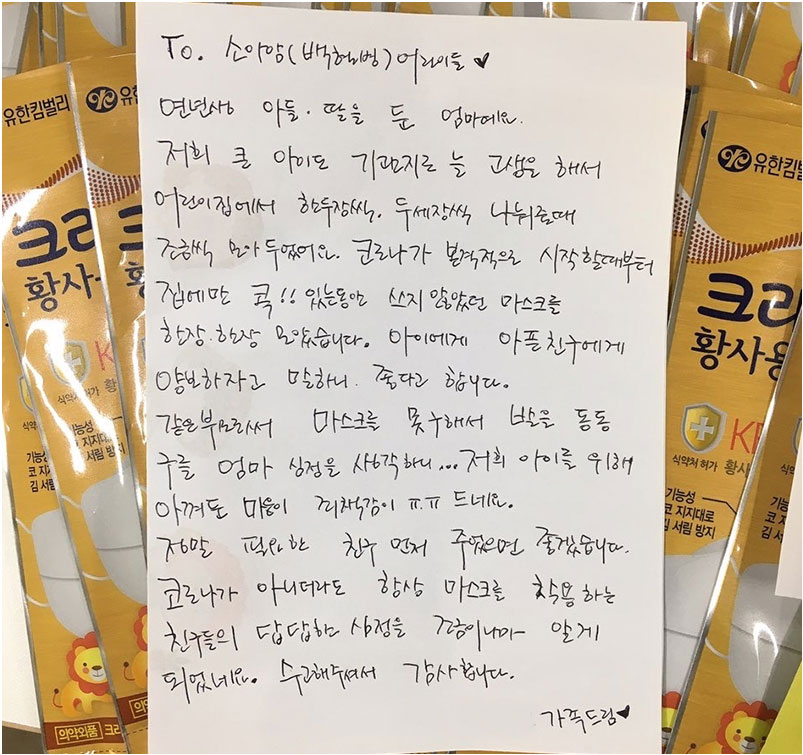 To. 소아암(백혈병)어린이들♥
연년생 아들·딸을 둔 엄마예요.
저희 큰 아이도 기관지로 늘 고생을 해서
어린이집에서 한두장씩, 두세장씩 나눠줄때
조금씩 모아두었어요. 코로나가 본격적으로 시작할때부터
집에만 콕!! 있는동안 쓰지않았던 마스크를
한장.한장 모았습니다. 아이에게 아픈친구에게
양보하자고 말하니. 좋다고 합니다.
같은부모로써 마스크를 못구해서 발을 동동
구를 엄마 심정을 생각하니... 저희 아이를 위해
아껴도 마음이 죄책감이 ㅠㅠ 드네요.
정말 필요한 친구 먼저 주었으면 좋겠습니다.
코로나가 아니더라도 항상 마스크를 착용하는
친구들의 답답한 심정을 조금이나마 알게
되었네요. 수고해주셔서 감사합니다.
가족드림♥
유한킴벌리
유한킴벌리
크리
황사
식약처 허가
기능성
코 지지대로
김 서림 방지
의약외품
유한킴벌리
크리
황사용
KF
식약처 허가 황사
기능성
코 지지대로
김 서림 방지